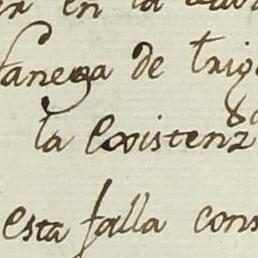 en la
fanega de trig
la Existenz
esta falla cons